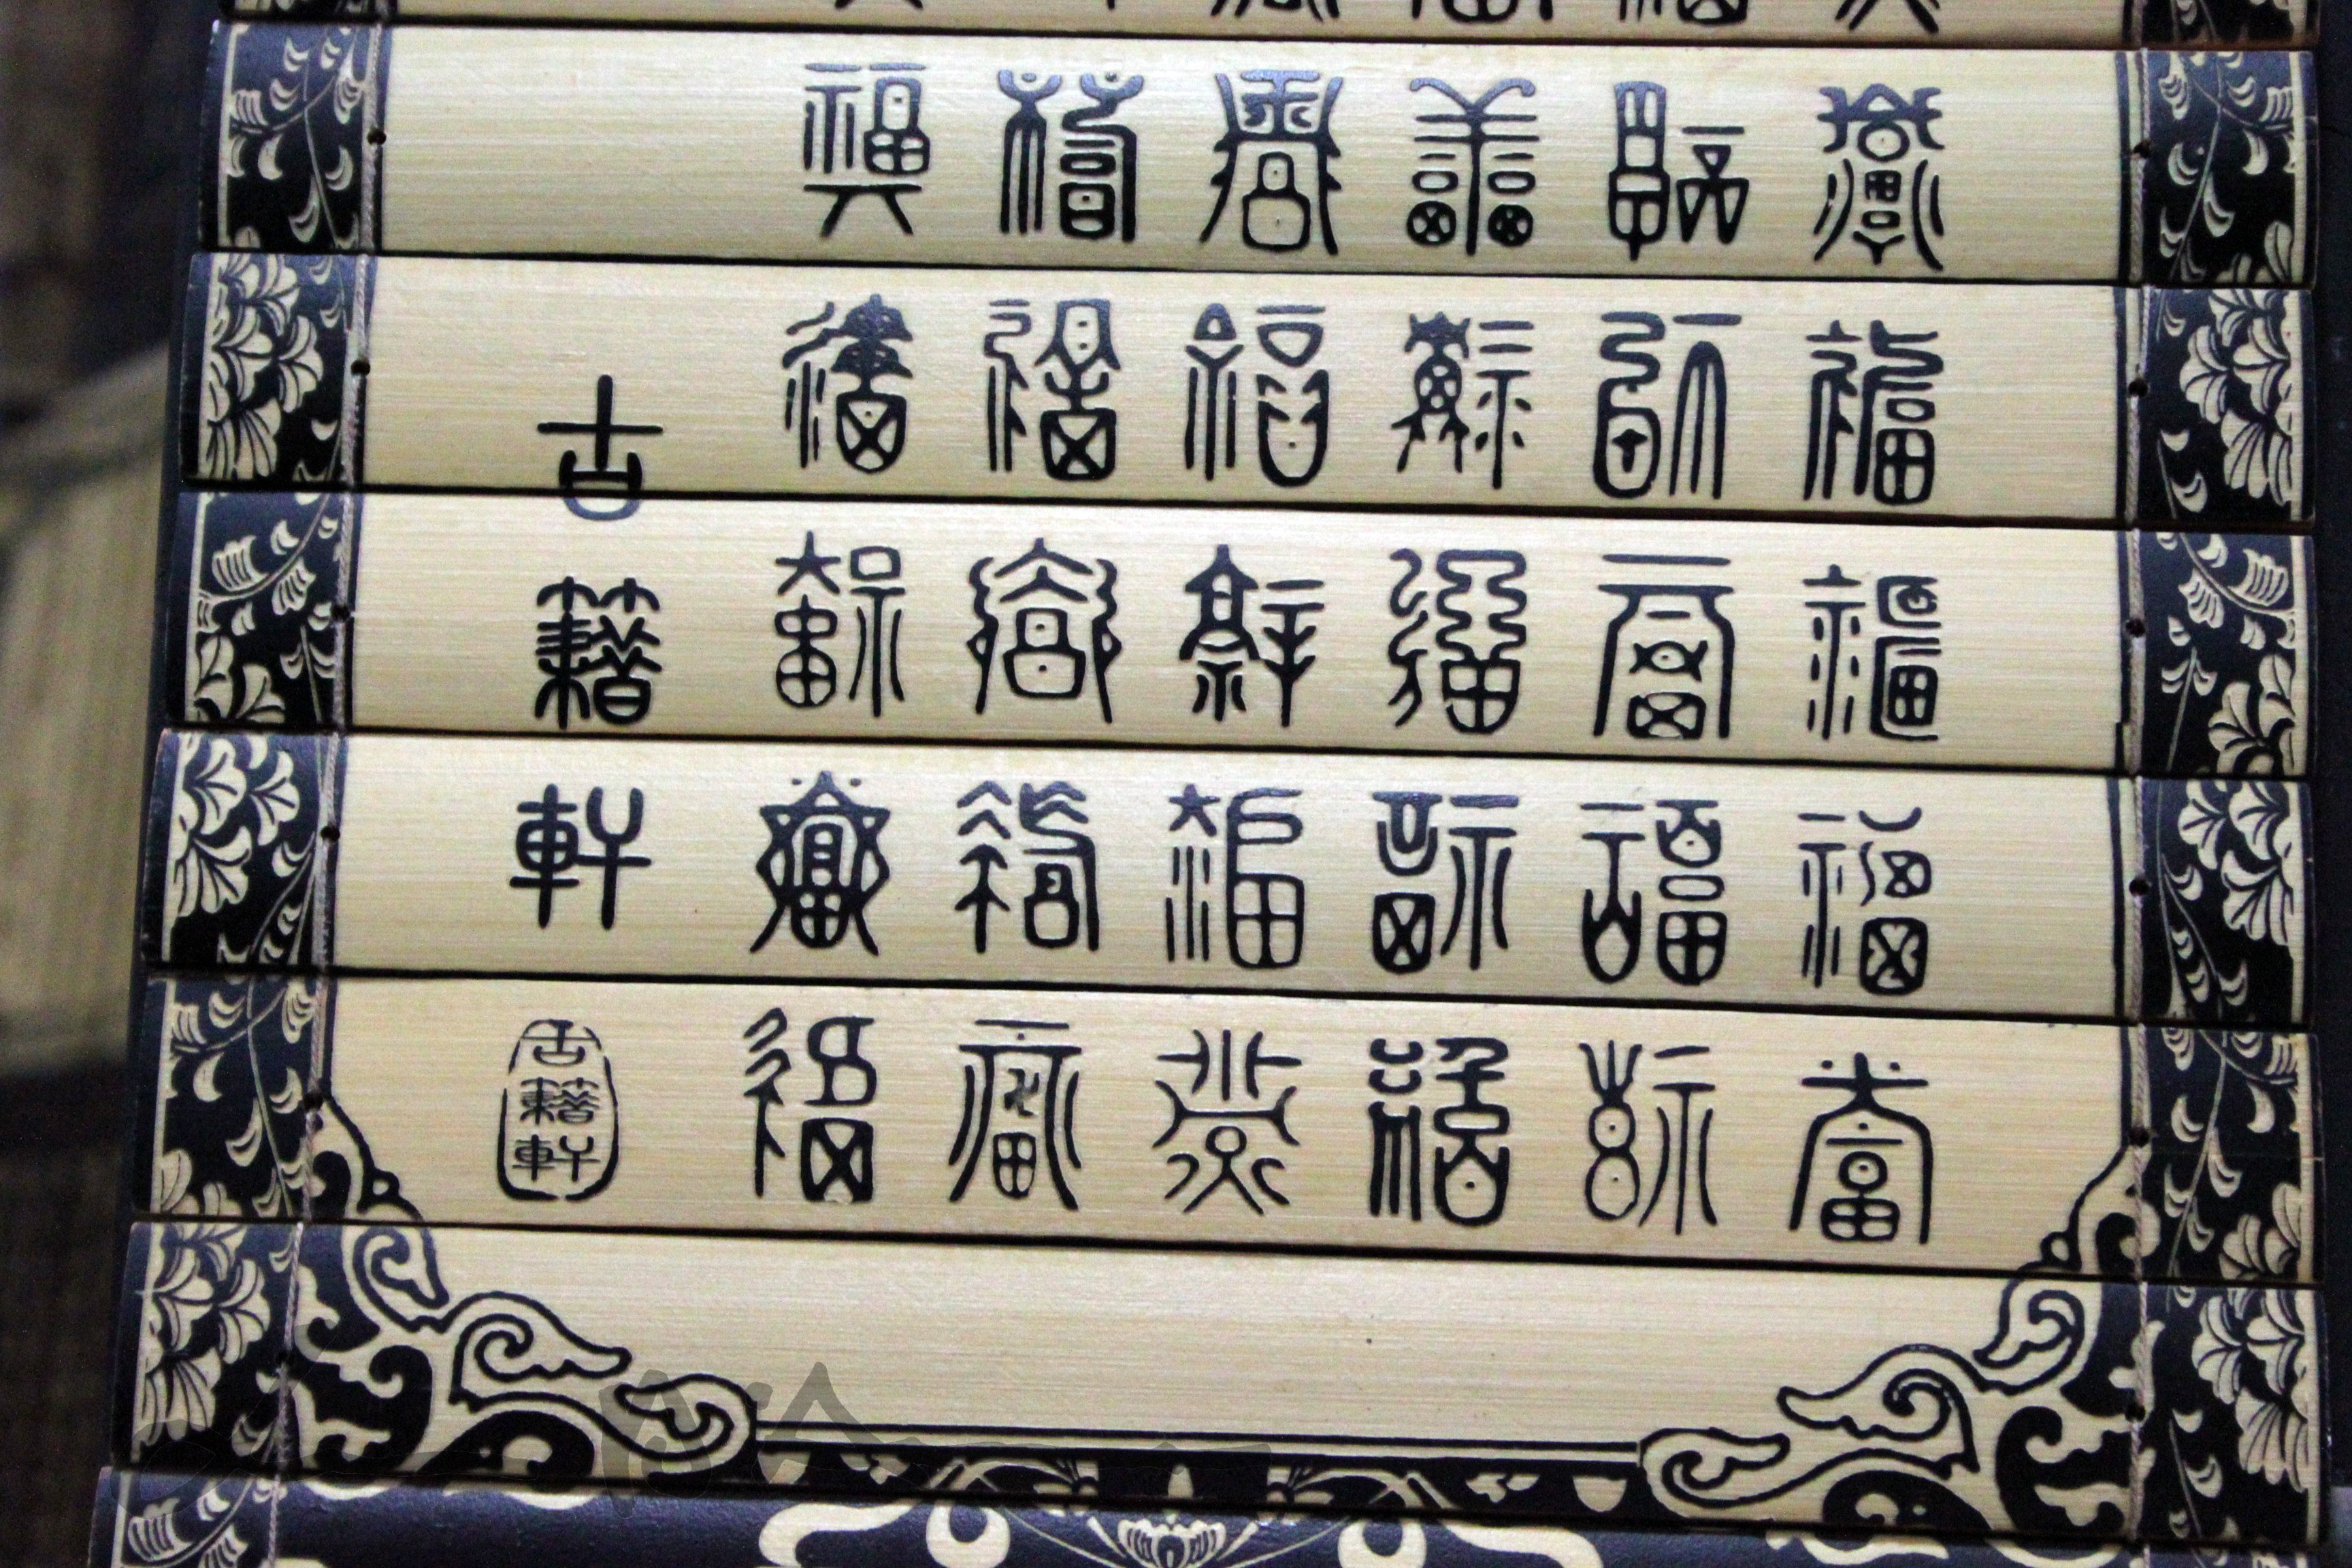 福福福福福
福福福福福
福福福福福
福福福福福
福福福福福
福福福福福
古籍軒
古籍軒